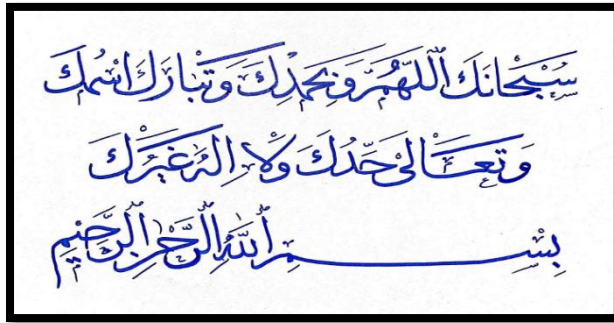 سُبْحَانَكَ اللّٰهُمَّ وَبِحَمْدِكَ وَتَبَارَكَ اسْمُكَ
وَتَعَالٰى جَدُّكَ وَلَا اِلٰهَ غَيْرُكَ
بِسْمِ اللّٰهِ الرَّحْمٰنِ الرَّحِيْمِ